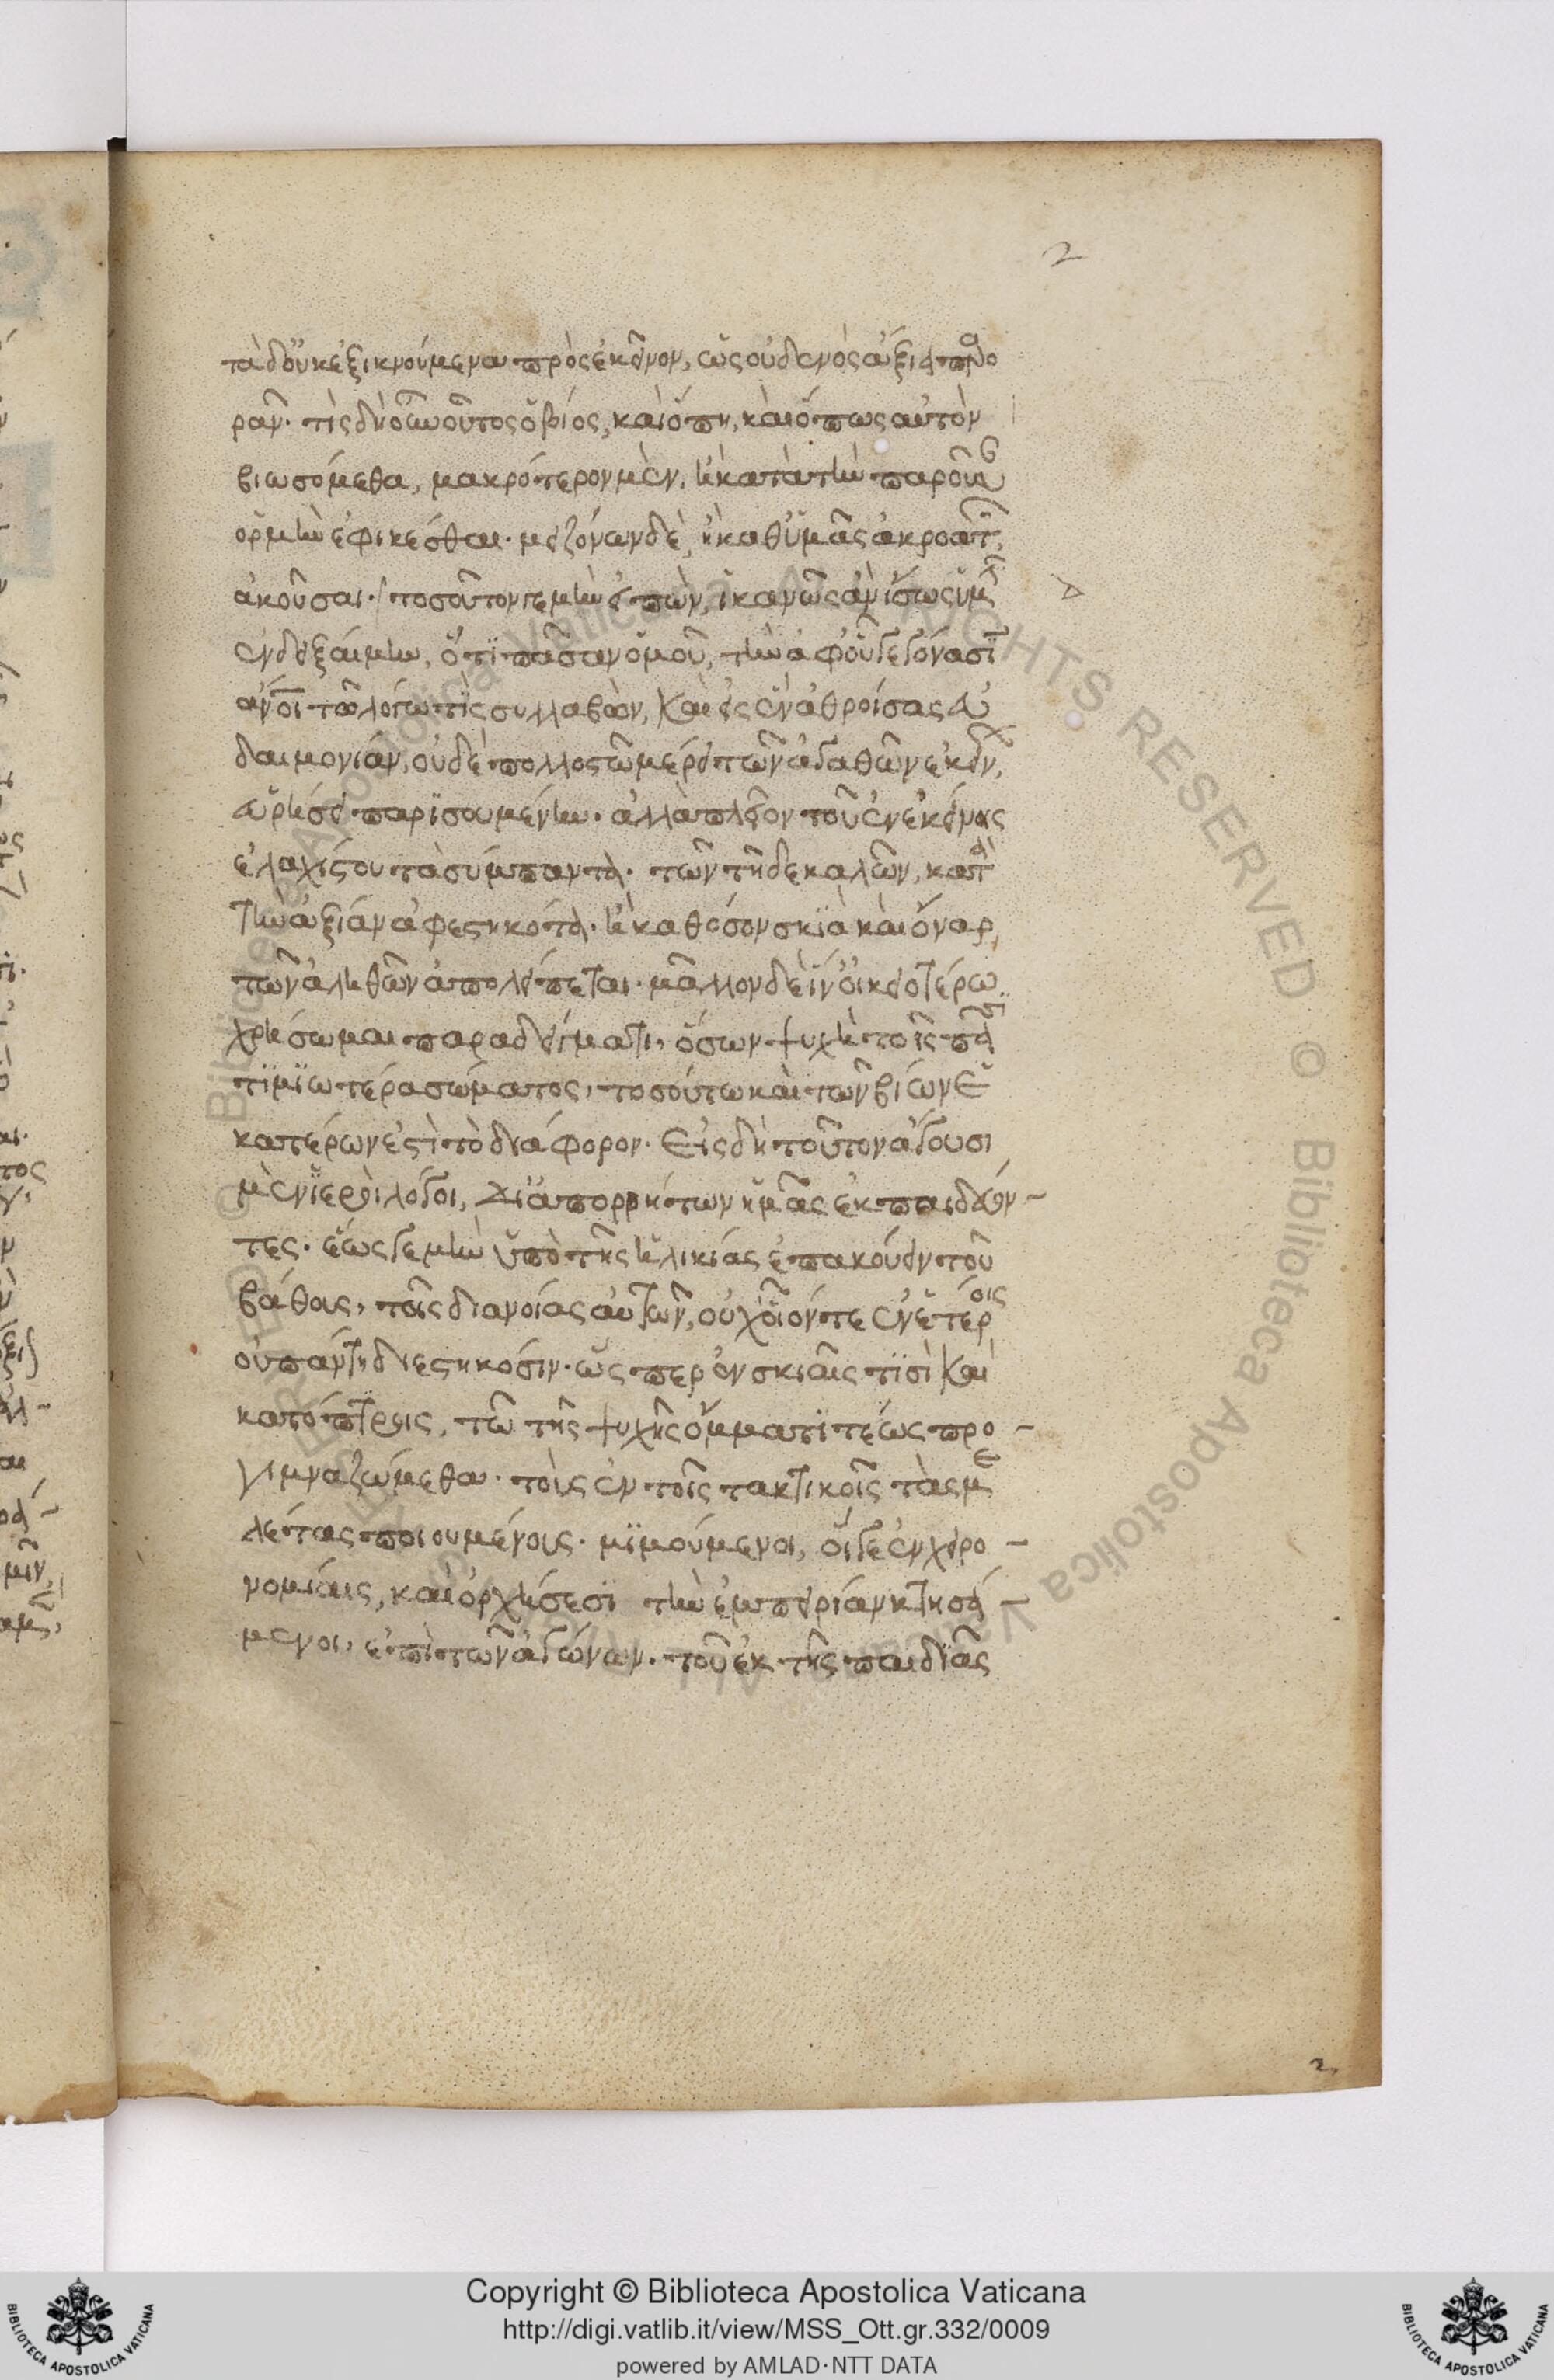 2
τὰ δ' οὐκ ἐξικνούμενα πρὸς ἐκεῖνον, ὡς οὐδενὸς ἄξια παρο
ρᾶν. τίς δὴ οὖν οὗτος ὁ βίος, καὶ ὅπη, καὶ ὅπως αὐτὸν
βιωσόμεθα, μακρότερον μὲν, ἢ κατὰ τὴν παροῦσαν
ὁρμὴν ἐφικέσθαι. μειζόνων δὲ, ἢ καθ' ὑμᾶς ἀκροατῶν,
ἀκοῦσαι. τοσοῦτόν γε μὴν εἰπὼν, ἱκανῶς ἂν ἴσως ὑμῖν
ἐνδειξαίμην, ὅτι πᾶσαν ὁμοῦ, τὴν ἀφ' οὗ γεγόνασιν
ἄνοι τῶ λόγω τὶς συλλαβὼν, καὶ εἰς ἓν ἀθροίσας εὐ
δαιμονίαν, οὐδὲ πολλοστῶ μέρει τῶν ἀγαθῶν ἐκείνων,
εὑρήσει παρισουμένην. ἀλλὰ πλεῖον τοῦ ἐν ἐκείνοις
ἐλαχίστου τὰ σύμπαντα. τῶν τῆδε καλῶν, κατὰ
τὴν ἀξίαν ἀφεστηκότα. ἢ καθόσον σκιὰ καὶ ὄναρ,
τῶν ἀληθῶν ἀπολείπεται. μᾶλλον δὲ ἵν' οἰκειοτέρω
χρήσωμαι παραδείγματι, ὅσων ψυχὴ τοῖς πᾶσι
τιμιωτέρα σώματος, τοσούτω καὶ τῶν βίων ἑ
κατέρων ἐστὶ τὸ διάφορον. Εἰς δὴ τοῦτον ἄγουσι
μὲν ἱεροὶ λόγοι, δι' ἀπορρήτων ἡμᾶς ἐκπαιδεύον-
τες. ἕως γε μὴν ὑπὸ τῆς ἡλικίας ἐπακούειν τοῦ
βάθους, τῆς διανοίας αὐτῶν, οὐχ οἷόν τε ἐν ἑτέροις
οὐ πάντη διεστηκόσιν. ὥσπερ ἐν σκιαῖς τισὶ καὶ
κατόπτροις, τῶ τῆς ψυχῆς ὄμματι τέως προ-
γυμναζώμεθα. τοὺς ἐν τοῖς τακτικοῖς τὰς με
λέτας ποιουμένους. μιμούμενοι, οἵ γε ἐν χειρο-
νομίαις, καὶ ὀρχήσεσι τὴν ἐμπειρίαν κτησά-
μενοι, ἐπὶ τῶν ἀγώνων. τοῦ ἐκ τῆς παιδιᾶς
2
Copyright © Biblioteca Apostolica Vaticana
http://digi.vatlib.it/view/MSS_Ott.gr.332/0009
powered by AMLAD·NTT DATA
BIBLIOTECA APOSTOLICA VATICANA
BIBLIOTECA APOSTOLICA VATICANA